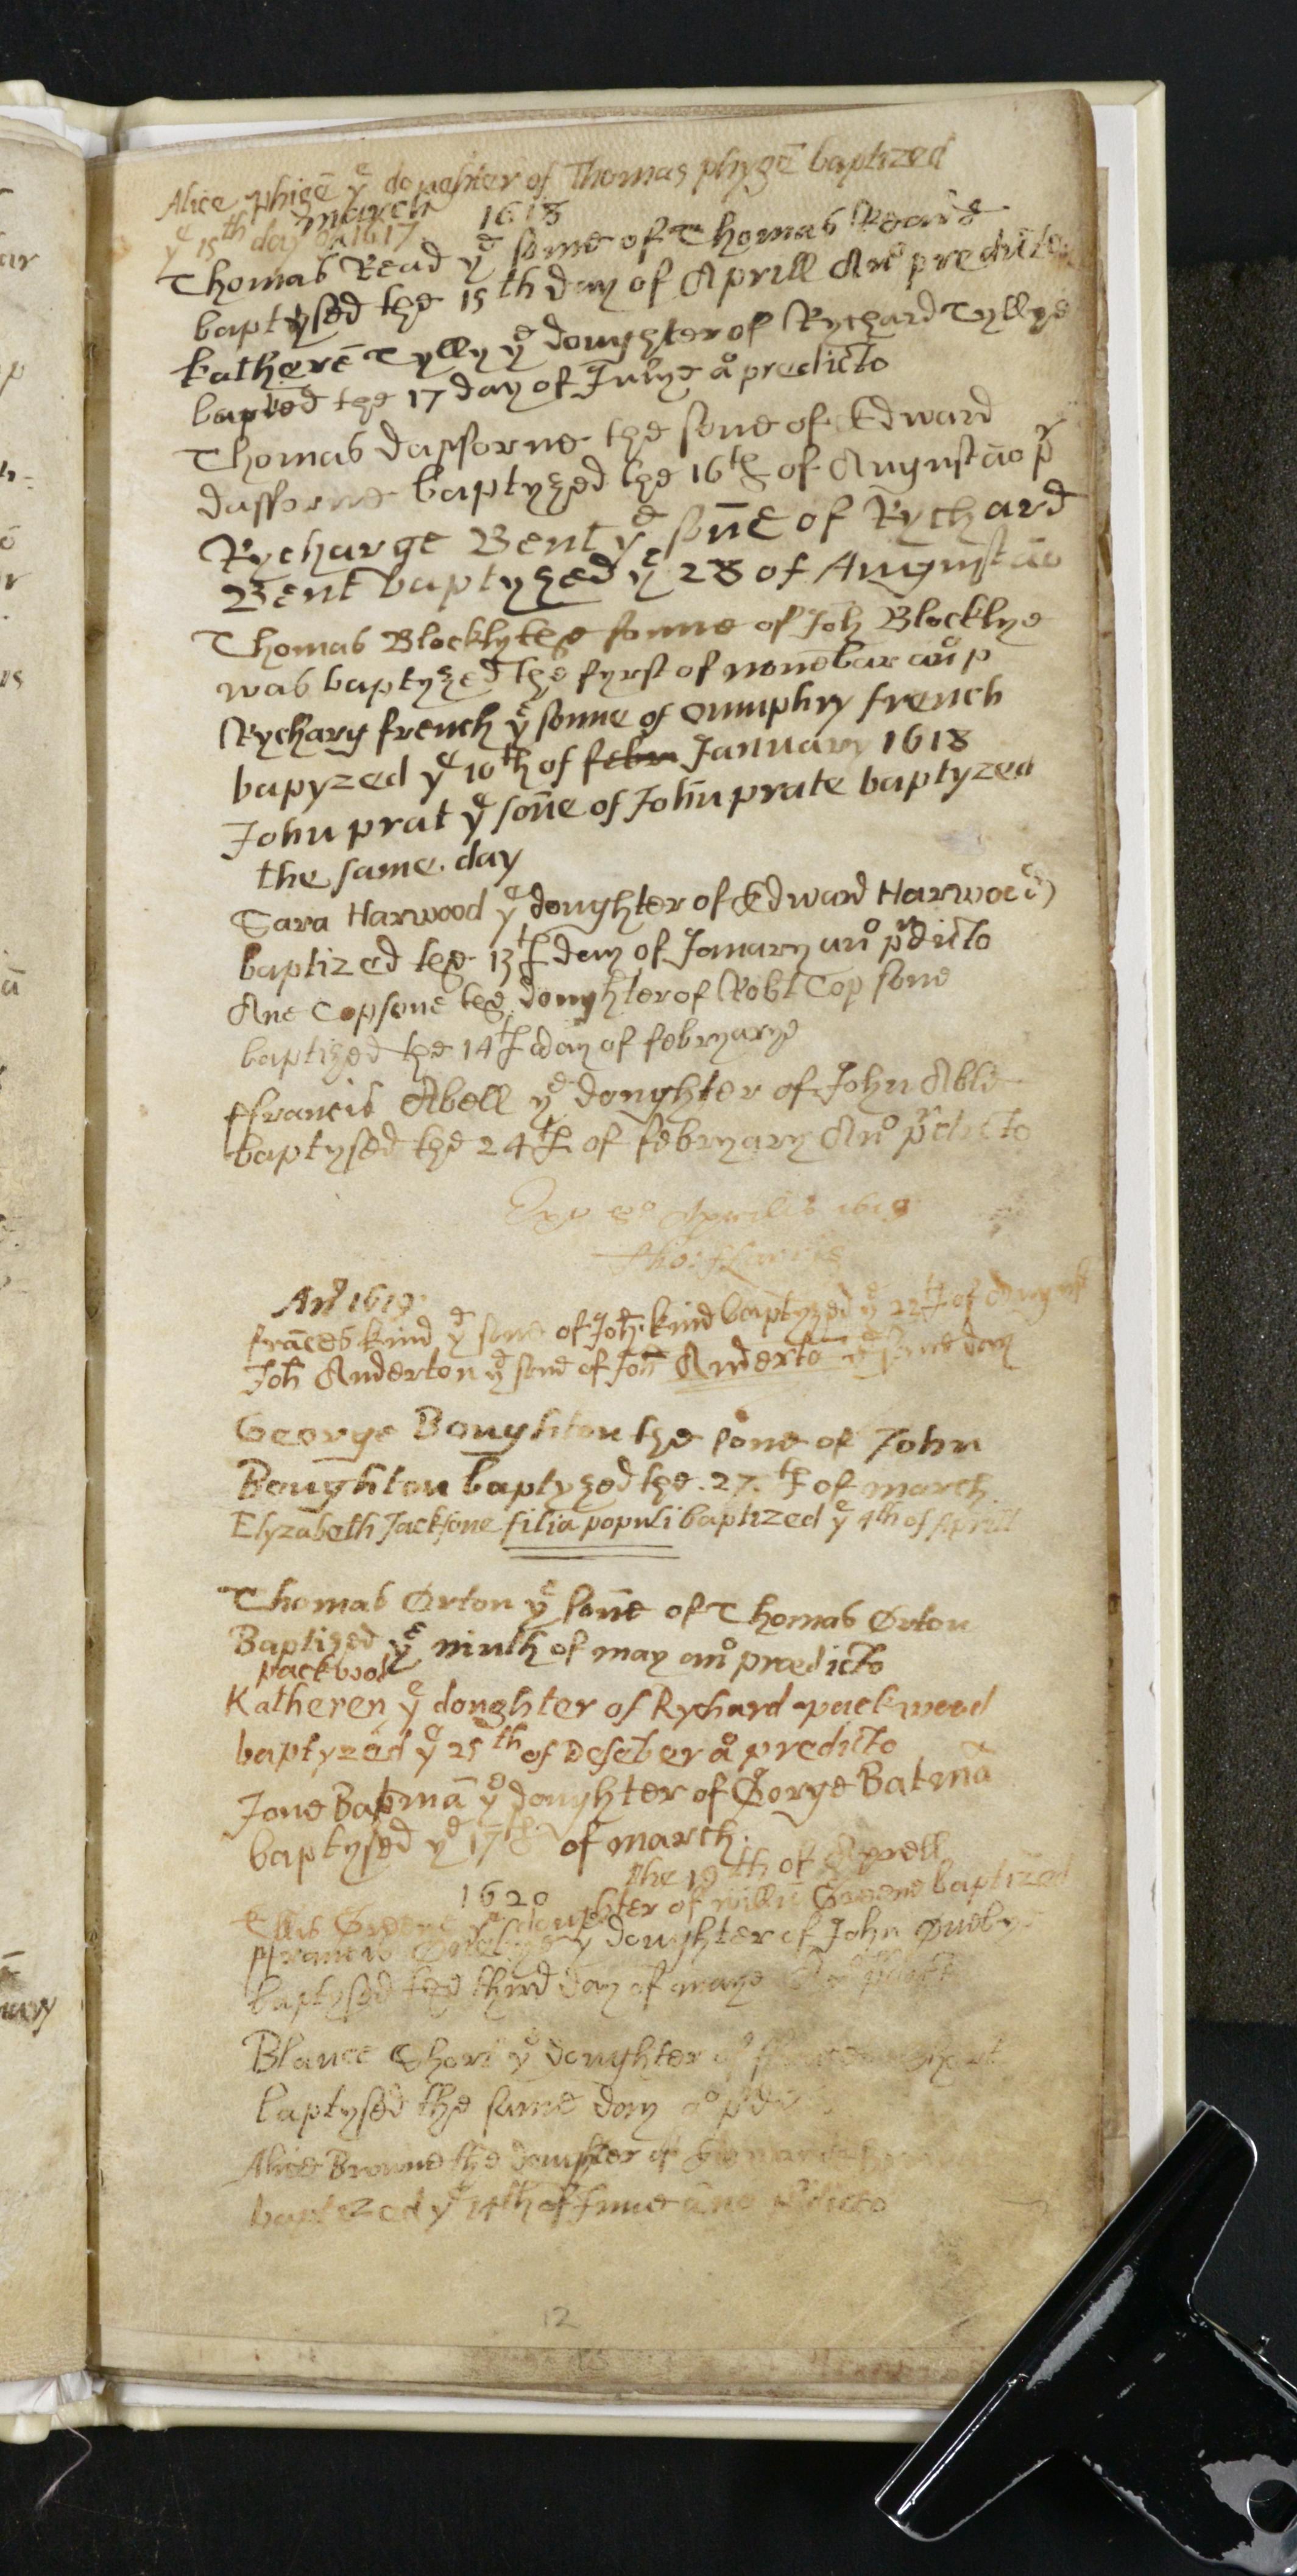 Alice phigē yᵉ doughter of Thomas phygē baptized
yᵉ 15th day of march 1617
1618
Thomas Read yᵉ sonne of Thomas Reade
baptysed the 15th day of Aprill Anᵒ predicto
katherē Tylly yᵉ doughter of Rychard Tyllye
baptied the 17 day of Julye aᵒ predicto
Thomas dafforne the sone of Edward
dafforne baptyzed the 16th of August āo p
Rycharge Bent yᵉ soñe of Rychard
Bent baptyzed yᵉ 28 of August āo
Thomas Blockly the sonne of Joh Blocklye
was baptyzed the fyrst of novēbar anᵒ p
Rychary french yᵉ sonne of Oumphry french
bapyzed yᵉ 10th of febr January 1618
John prat yᵉ soñe of John prate baptyzed
the same day
Sara Harwood yᵉ doughter of Edward Harwoed
baptized the 13th day of Januarry anᵒ pʳdicto
Ane Copsone the doughter of Robt Copsone
baptized the 14th day of febryarye
ffrancis Abell yᵉ doughter of John Able
baptysed the 24th of febryary Anᵒ pʳdicto
Aprilis 1619
Anᵒ 1619
frāces kind yᵉ sone of Joh kind baptyzed yᵉ 22th of August
Joh Anderton yᵉ sone of Joh Andertō yᵉ same day
George Boughton the sone of John
Boughton baptyzed the 27th of march
Elyzabeth Jacksone filia populi baptized yᵉ 4th of Aprill
Thomas Orton yᵉ soñe of Thomas Orton
Baptized yᵉ ninth of may anᵒ prædicto
packwod
Katheren yᵉ doughter of Rychard packwood
baptyzed yᵉ 25th of Deseber aᵒ predicto
Jone Batmā yᵉ doughter of Gorge Batmā
baptysed yᵉ 17th of march
1620 the 19th of Aprell
Ellis Greene yᵉ doughter of willū Greene baptized
ffrancis Oneby yᵉ doughter of John Oneby
baptysed the thyrd day of maye
Blance Short yᵉ doughter of
baptysed the same day aᵒ pd
Alice Browne the doughter of
baptized yᵉ 14th of June āno pʳdicto
12